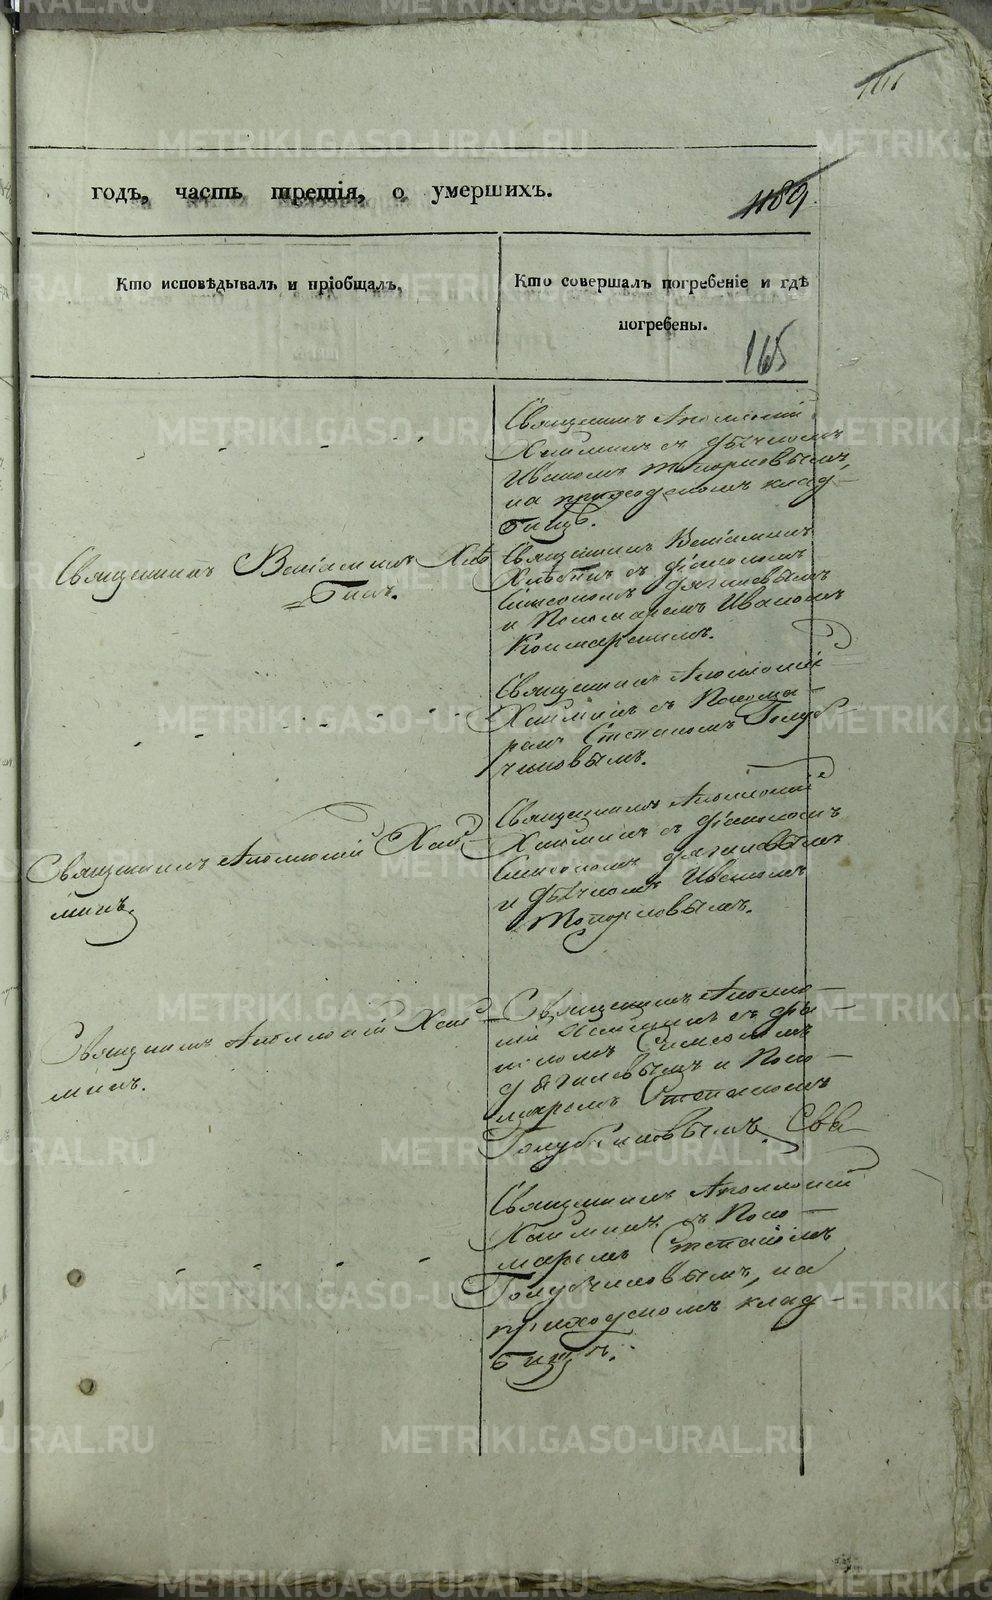 годъ, часть третія, о умершихъ.
1189
165
Кто исповѣдывалъ и пріобщалъ.
Кто совершалъ погребеніе и гдѣ
погребены.
Священникъ Аполлоній
Хайминъ съ дьячкомъ
Иваномъ Топорковымъ,
на приходскомъ клад-
бищѣ.
Священникъ Веніаминъ Хлѣ
=бинъ.
Священникъ Веніаминъ
Хлѣбинъ съ діакономъ
Симеономъ Дягилевымъ
и Пономаремъ Иваномъ
Священникъ Аполлоній
Хайминъ съ Понома-
ремъ Степаномъ Голуб
чиковымъ.
Священникъ Аполлоній Хай-
минъ.
Священникъ Аполлоній
Хайминъ съ діакономъ
Симеономъ Дягилевымъ
и дьячкомъ Иваномъ
Топорковымъ.
Священникъ Аполлоній Хай-
минъ.
Священникъ Аполло-
ній Хайминъ съ діа-
кономъ Симеономъ
Дягилевымъ и Поно-
маремъ Степаномъ
Голубчиковымъ.
Священникъ Аполлоній
Хайминъ съ Поно-
маремъ Стефаномъ
Голубчиковымъ, на
приходскомъ клад-
бищѣ.
METRIKI.GASO-URAL.RU